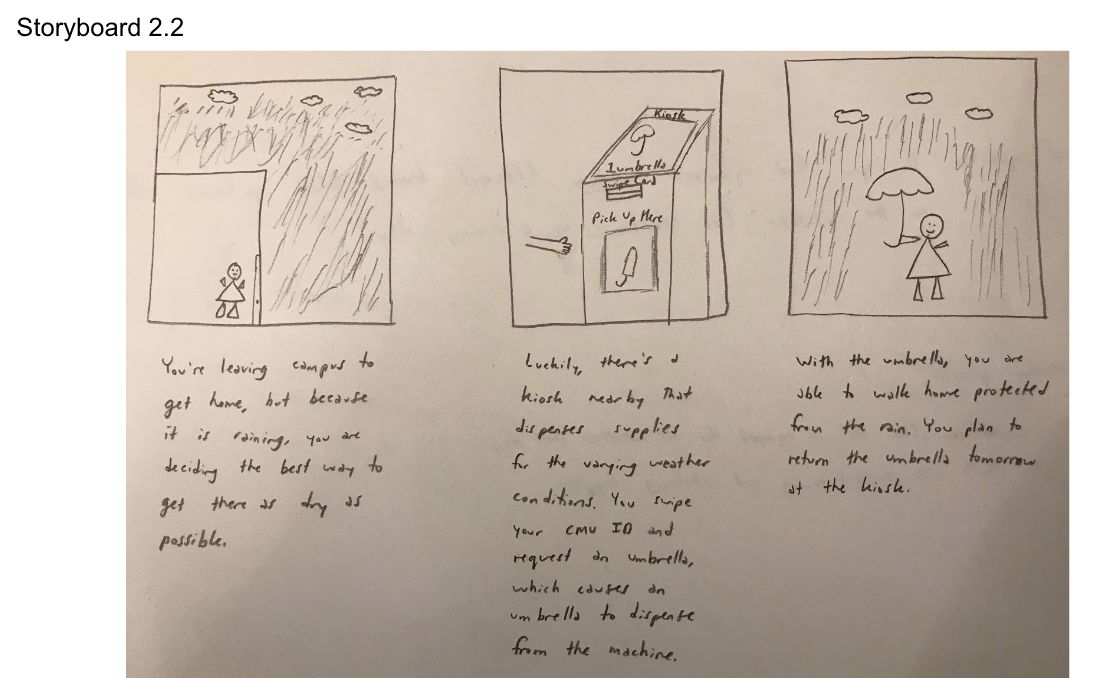 Storyboard 2.2
Kiosk
1 umbrella
Swipe Card
Pick Up Here
You're leaving campus to
get home, but because
it is raining, you are
deciding the best way to
get there as dry as
possible.
Luckily, there's a
kiosk nearby that
dispenses supplies
for the varying weather
conditions. You swipe
your CMU ID and
request an umbrella,
which causes an
umbrella to dispense
from the machine.
With the umbrella, you are
able to walk home protected
from the rain. You plan to
return the umbrella tomorrow
at the kiosk.